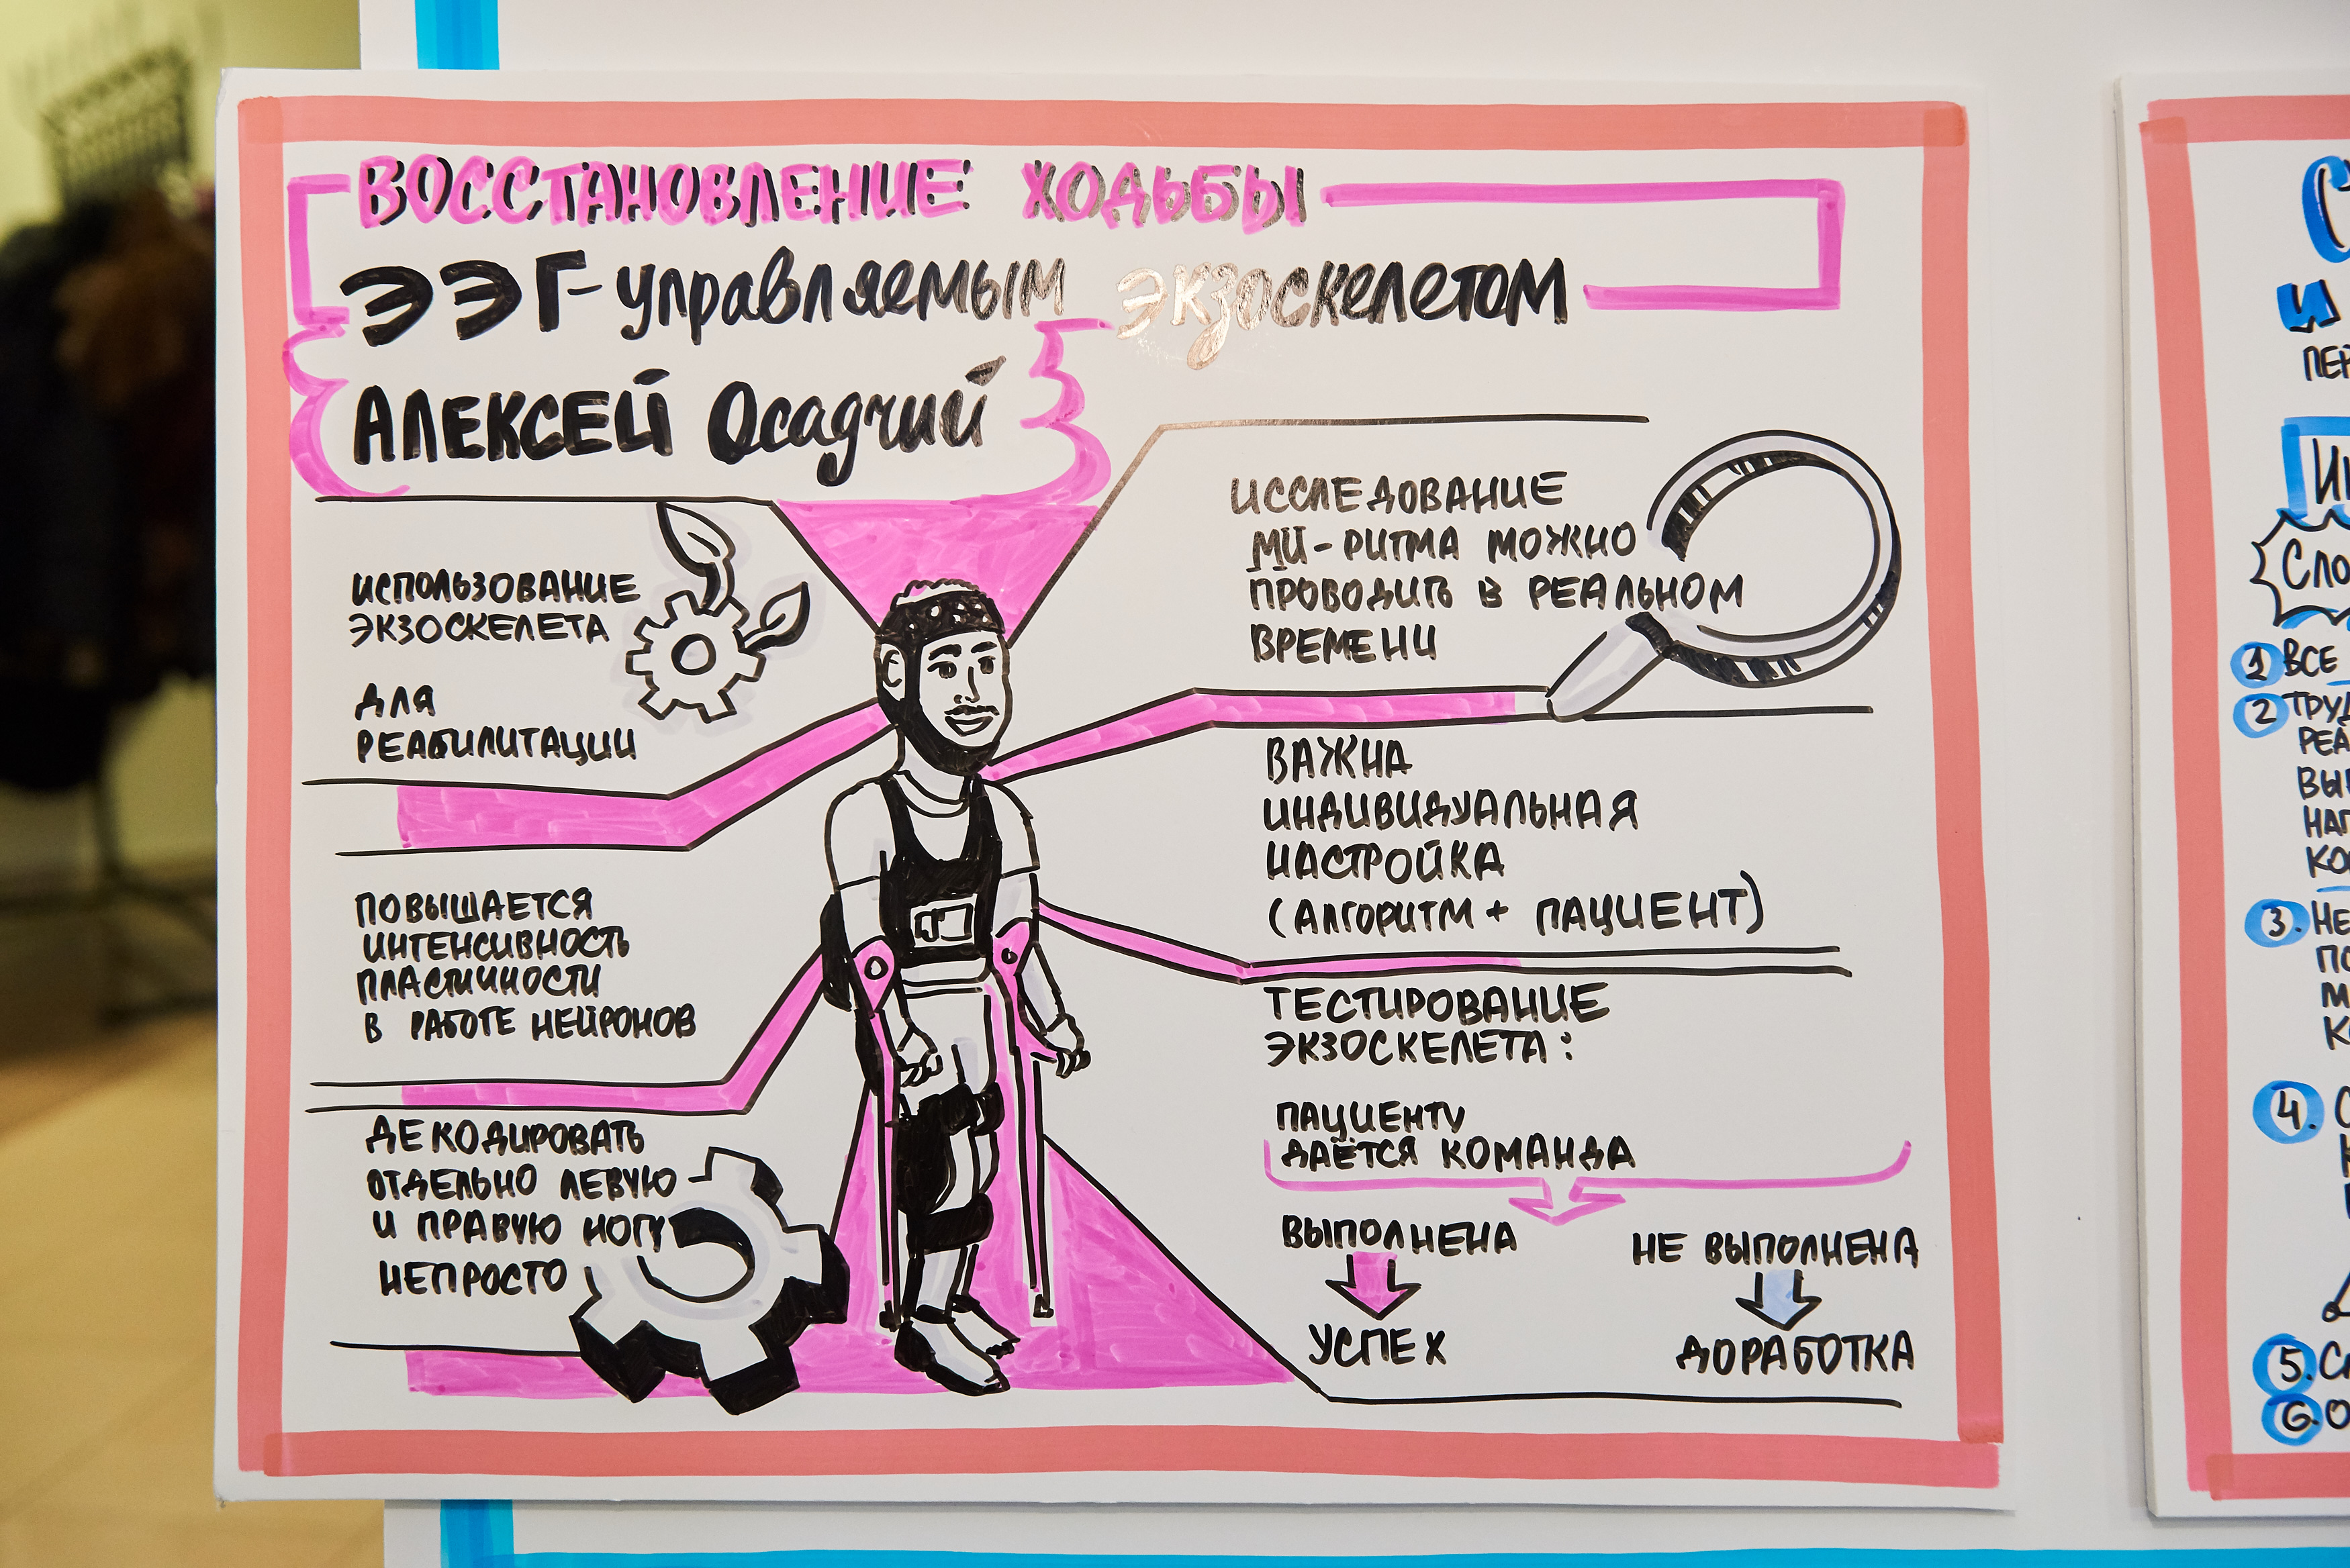 ВОССТАНОВЛЕНИЕ ХОДЬБЫ
ЭЭГ-управляемым экзоскелетом
АЛЕКСЕЙ Осадчий
ИСПОЛЬЗОВАНИЕ
ЭКЗОСКЕЛЕТА
ДЛЯ
РЕАБИЛИТАЦИИ
ПОВЫШАЕТСЯ
ИНТЕНСИВНОСТЬ
ПЛАСТИЧНОСТИ
В РАБОТЕ НЕЙРОНОВ
ДЕКОДИРОВАТЬ
ОТДЕЛЬНО ЛЕВУЮ
И ПРАВУЮ НОГУ
НЕПРОСТО
ИССЛЕДОВАНИЕ
МИ-РИТМА МОЖНО
ПРОВОДИТЬ В РЕАЛЬНОМ
ВРЕМЕНИ
ВАЖНА
ИНДИВИДУАЛЬНАЯ
НАСТРОЙКА
(АЛГОРИТМ + ПАЦИЕНТ)
ТЕСТИРОВАНИЕ
ЭКЗОСКЕЛЕТА:
ПАЦИЕНТУ
ДАЁТСЯ КОМАНДА
ВЫПОЛНЕНА
НЕ ВЫПОЛНЕНА
УСПЕХ
ДОРАБОТКА
И
1 ВСЕ
2
3. НЕ
4.
5.
6.